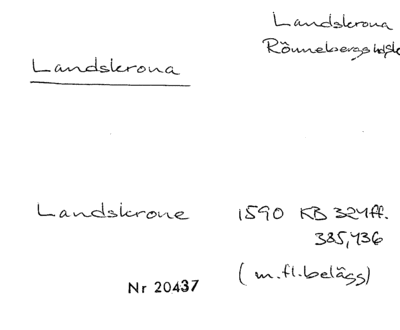 Landskrona
Rönnebergs
Landskrona
Landskrone 1590 KB 324ff.
385, 436
(m.fl.belägg)
Nr 20437